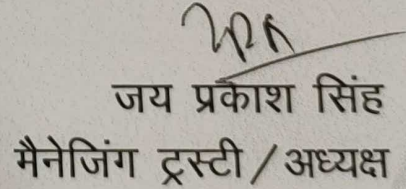 जय प्रकाश सिंह
मैनेजिंग ट्रस्टी / अध्यक्ष